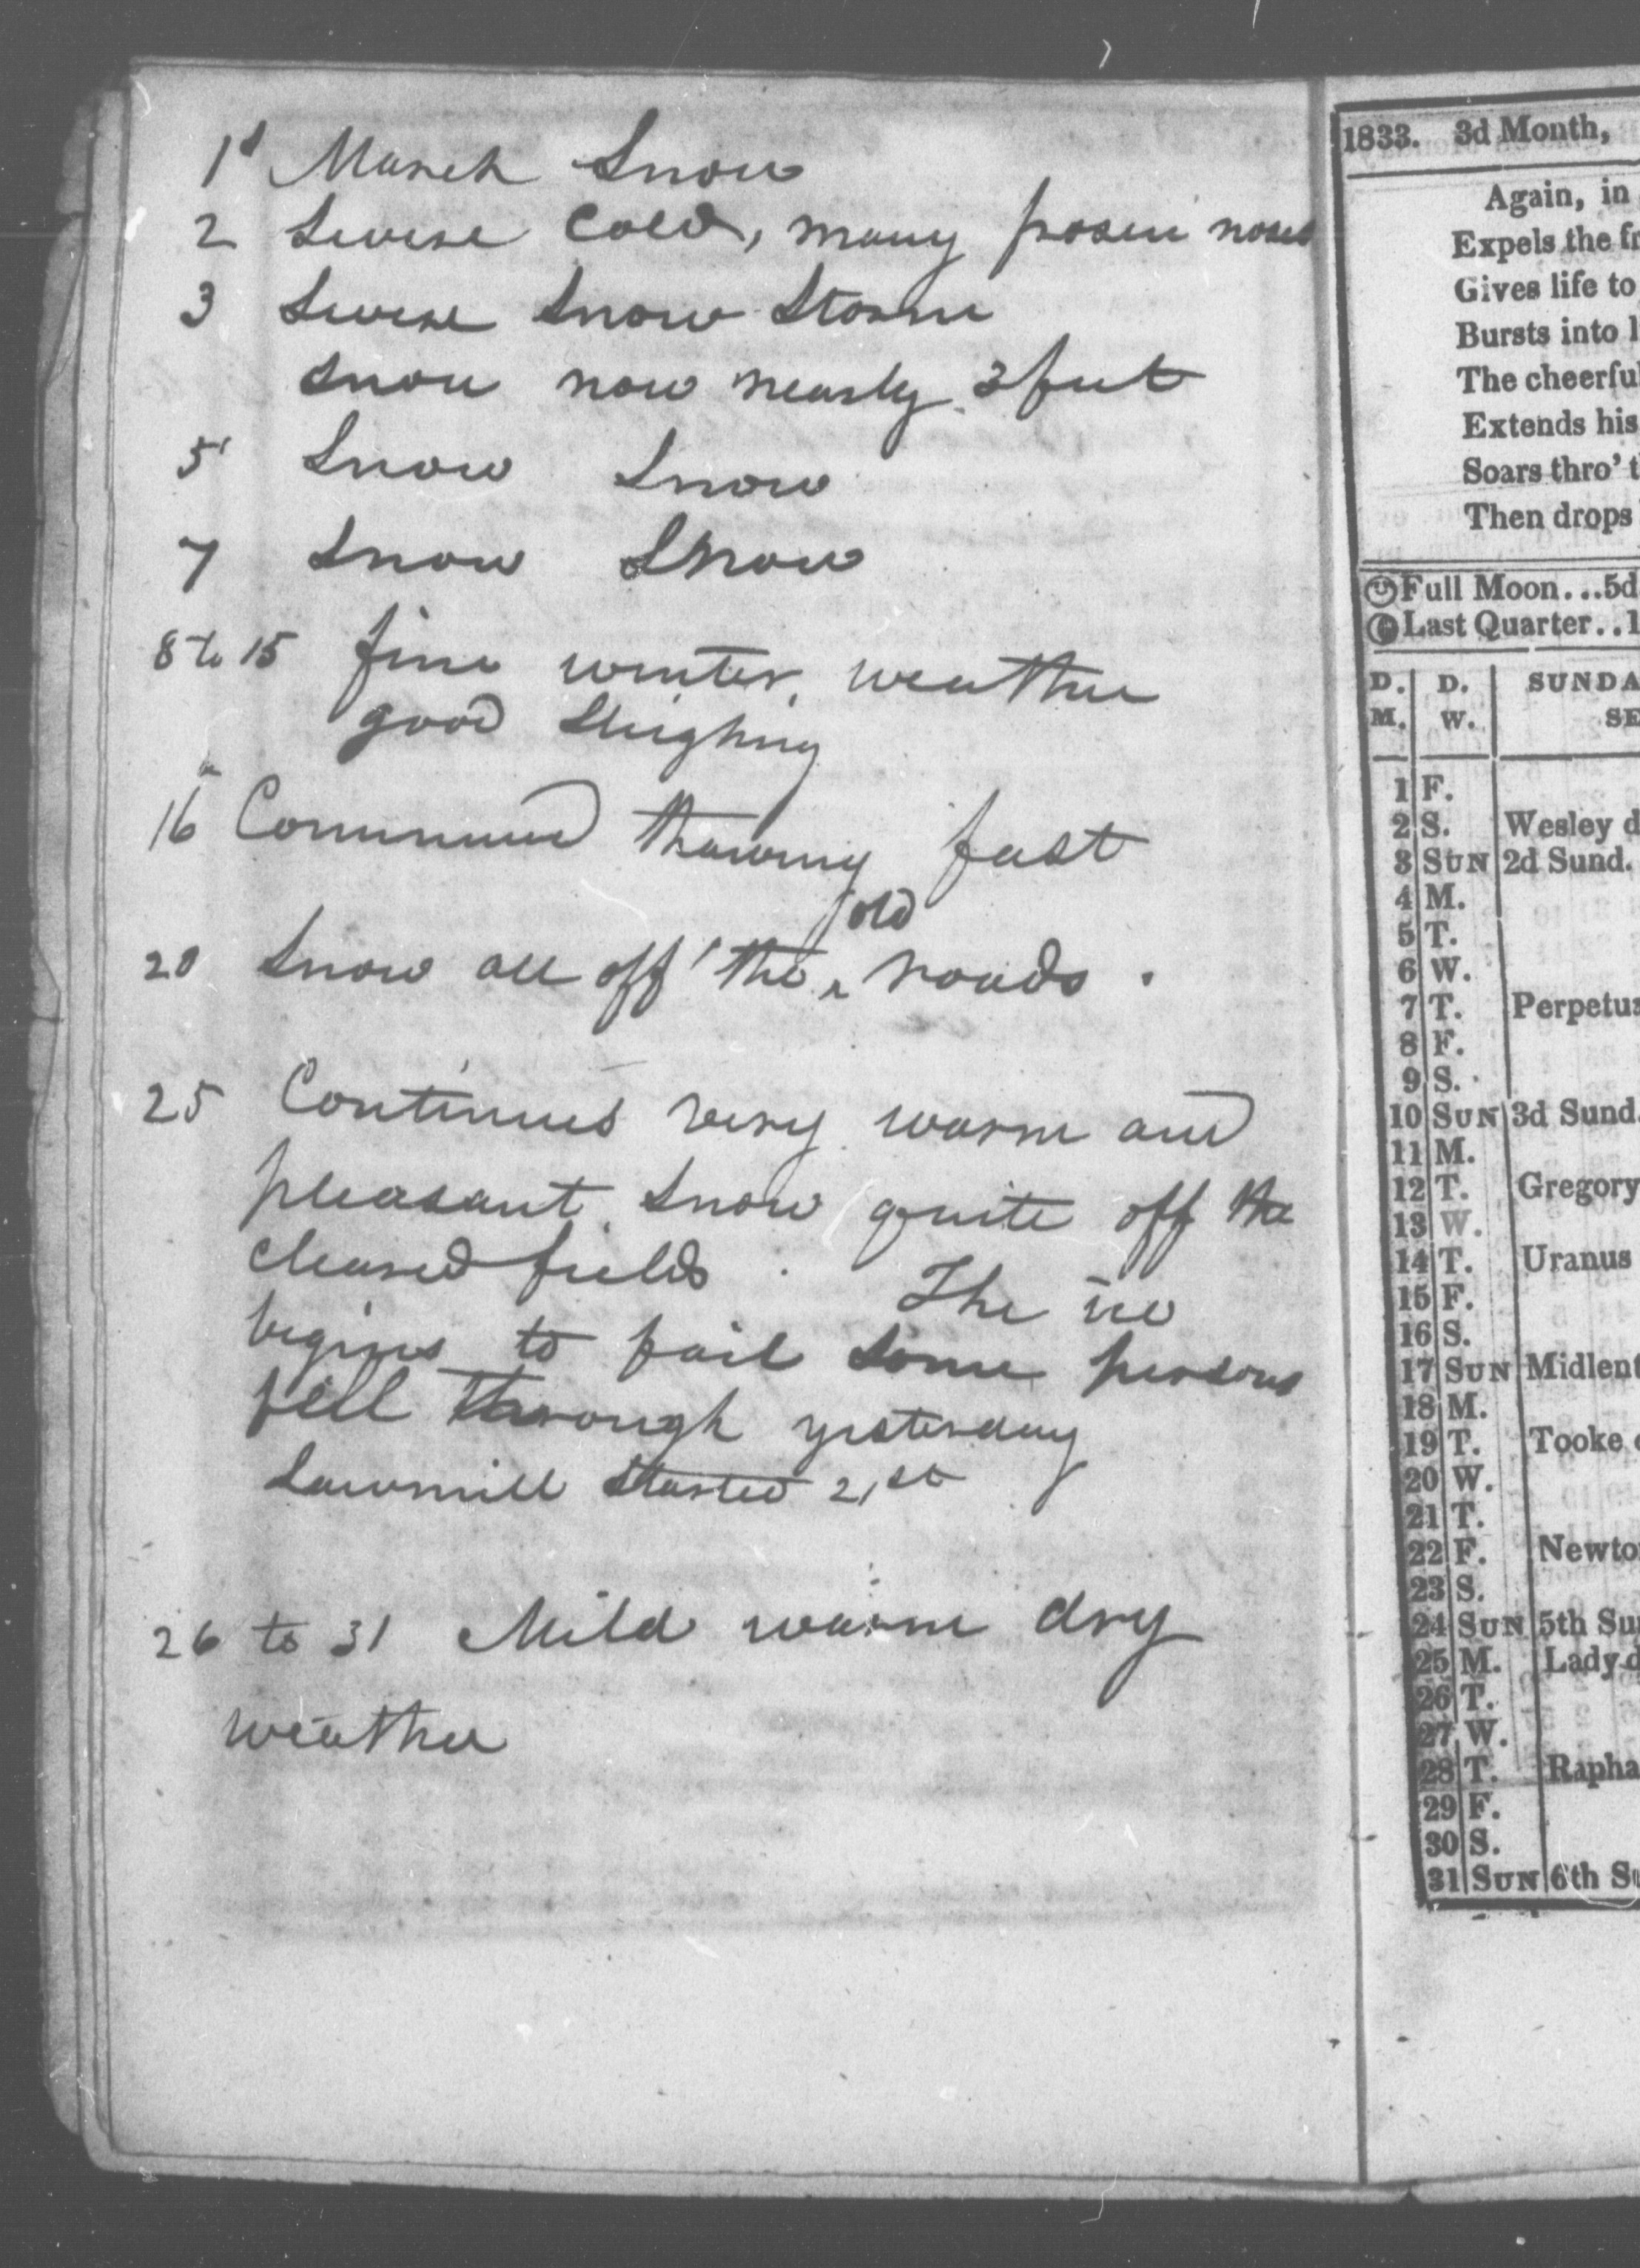 1st March Snow
2 Severe Cold, many frozen noses
3 Severe Snow Storm
Snow now nearly 3 feet
5 Snow Snow
7 Snow Snow
8 to 15 fine winter weather
good sleighing
16 Commenced thawing fast
old
20 Snow all off the ^ roads.
25 Continues very warm and
pleasant snow quite off the
cleared fields. The ice
begins to fail some persons
fell through yesterday
Sawmill started 21st
26 to 31 Mild warm dry
weather
1833. 3d Month,
Again, in
Expels the fr
Gives life to
Bursts into l
The cheerful
Extends his
Soars thro' t
Then drops
Full Moon...5d
Last Quarter..1
D. D. SUNDA
M. W. SE
1 F.
2 S. Wesley d
3 SUN 2d Sund.
4 M.
5 T.
6 W.
7 T. Perpetua
8 F.
9 S.
10 SUN 3d Sund.
11 M.
12 T. Gregory
13 W.
14 T. Uranus
15 F.
16 S.
17 SUN Midlent
18 M.
19 T. Tooke
20 W.
21 T.
22 F. Newto
23 S.
24 SUN 5th Su
25 M. Lady d
26 T.
27 W.
28 T. Rapha
29 F.
30 S.
31 SUN 6th Su